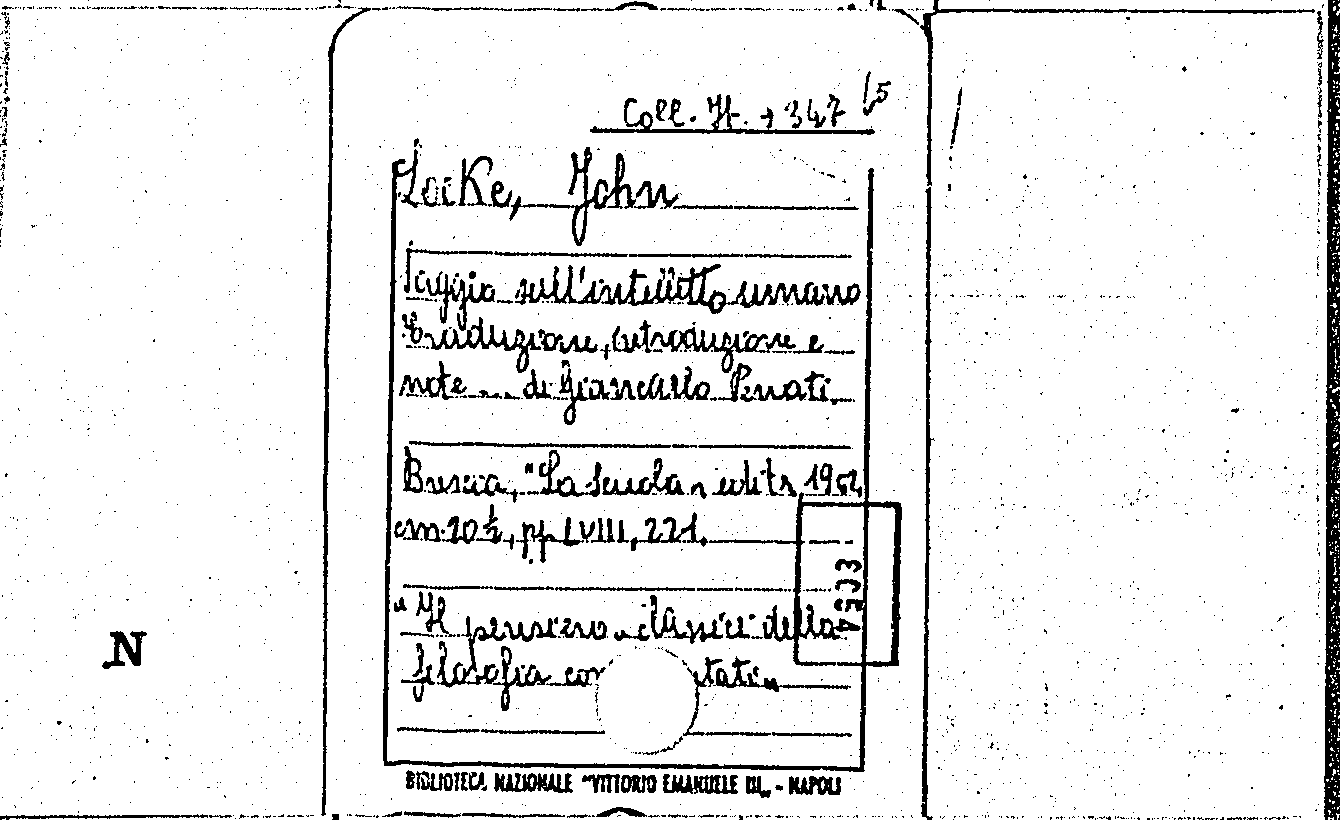 Coll. It. → 347 (5
Locke, John
Saggio sull'intelletto umano
Traduzione, introduzione e
note ... di Giancarlo Penati.
Brescia, "La Scuola„ editr, 1962
cm. 20 ½, pp. LVIII, 221.
"Il pensiero. classici della
filosofia com tati„
N
BIBLIOTECA NAZIONALE "VITTORIO EMANUELE III„ - NAPOLI